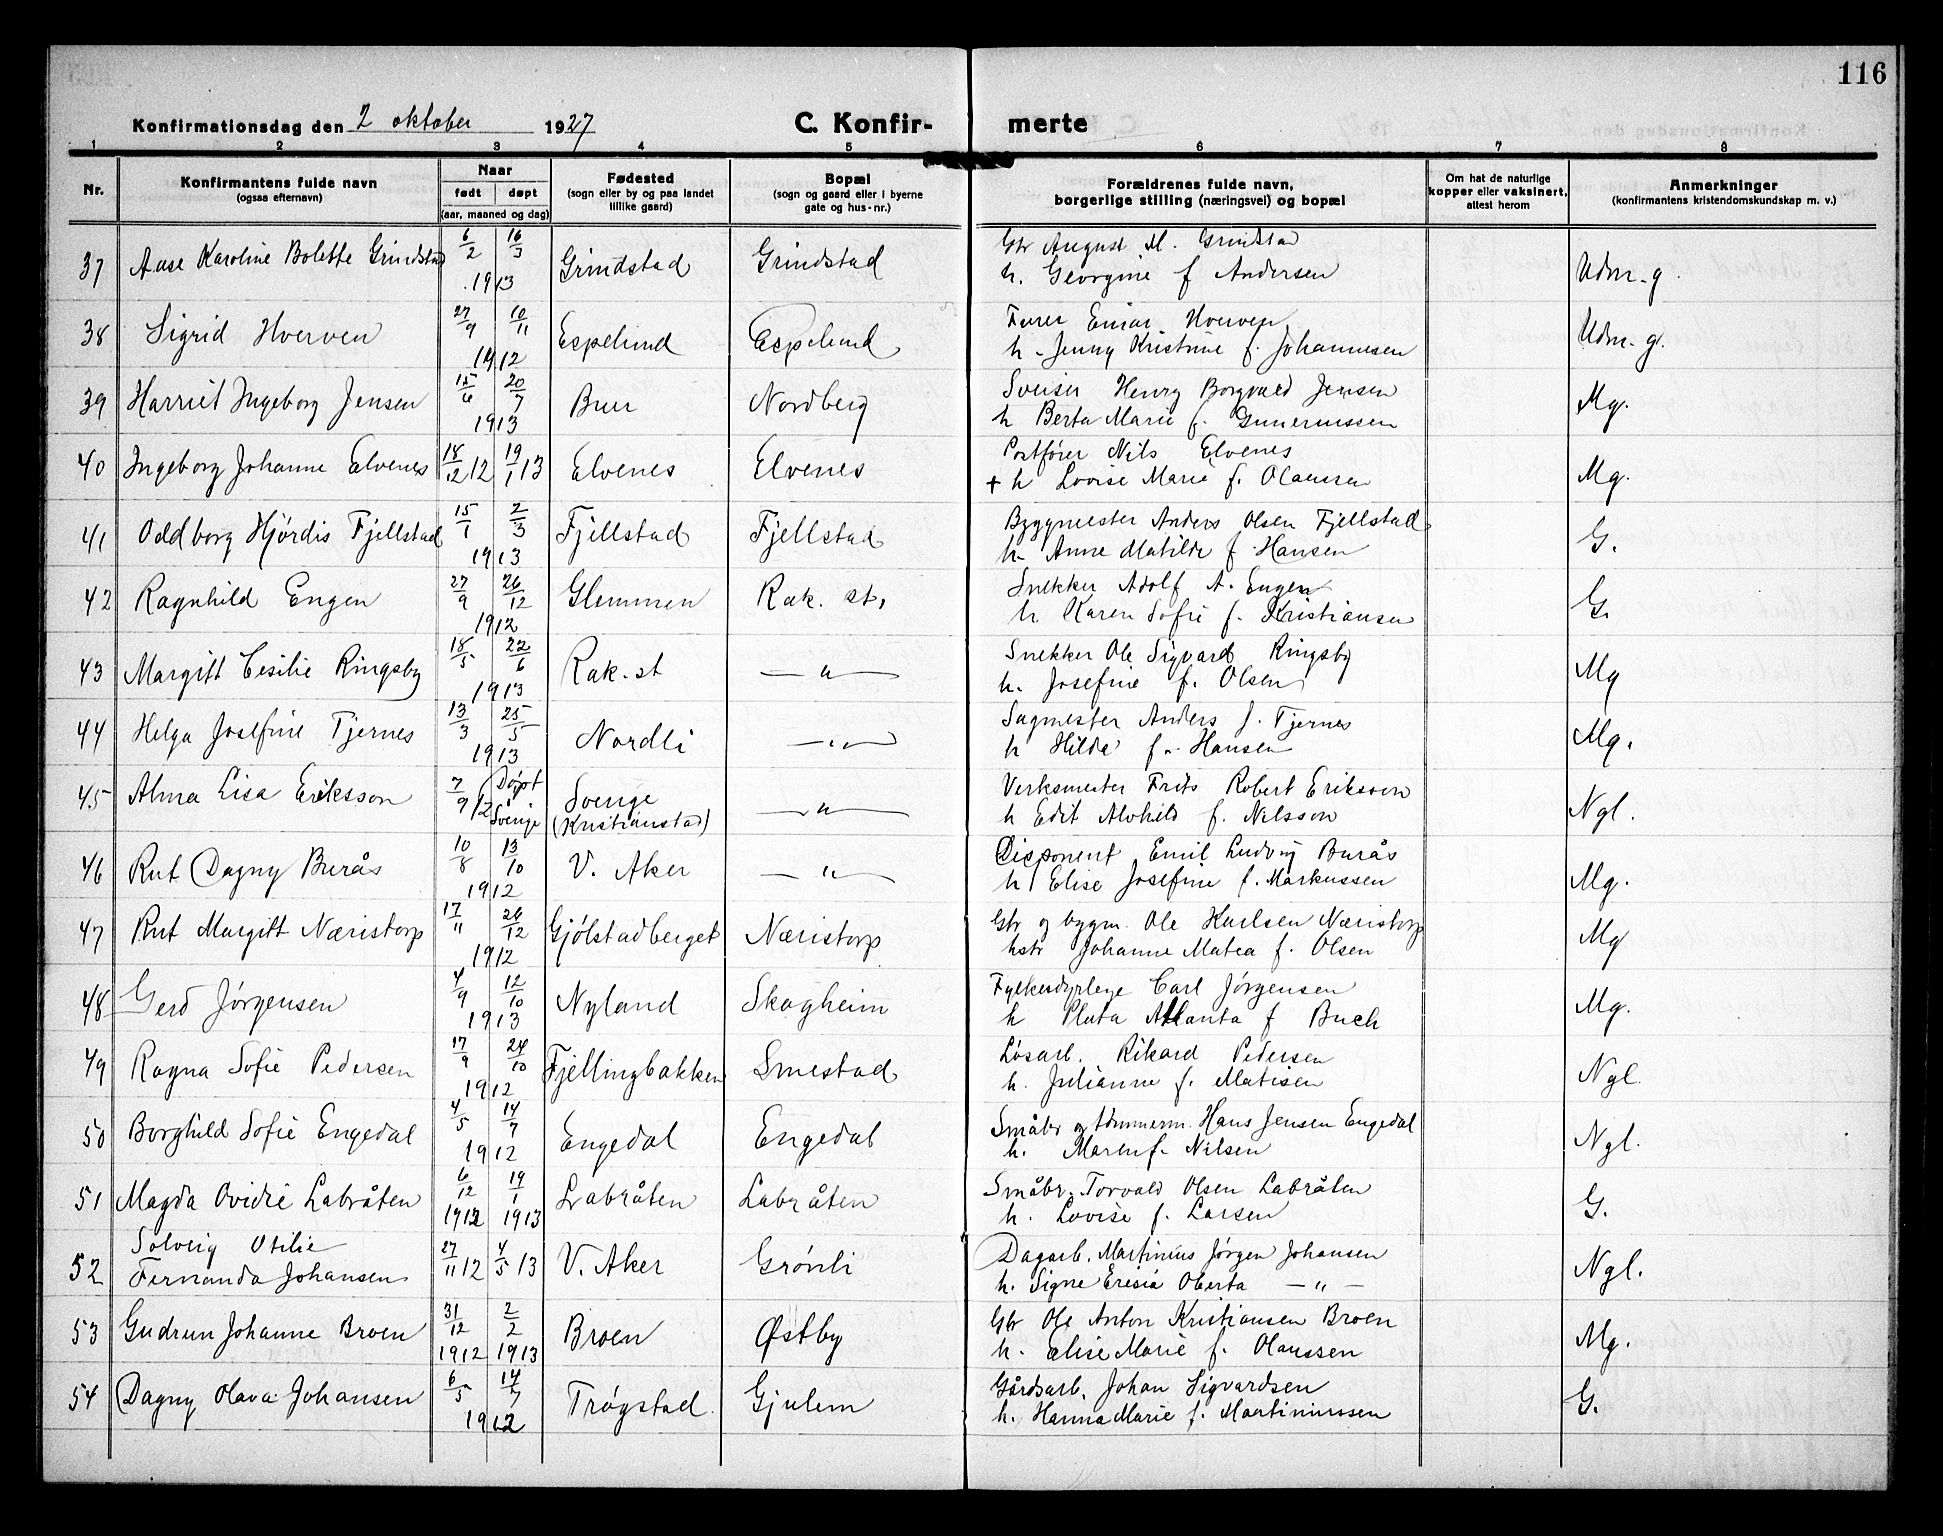 116
Konfirmationsdag den 2 oktober 1927 C. Konfir- merte
1 2 3 4 5 6 7 8
Nr. Konfirmantens fulde navn (ogsaa efternavn) Naar født døpt (aar, maaned og dag) Fødested (sogn eller by og paa landet tillike gaard) Bopæl (sogn og gaard eller i byerne gate og hus-nr.) Forældrenes fulde navn, borgerlige stilling (næringsvei) og bopæl Om hat de naturlige kopper eller vaksinert, attest herom Anmerkninger (konfirmantens kristendomskundskap m. v.)
37 Aase Karoline Bolette Grindstad 6/2 16/3 1913 Grindstad Grindstad Gbr August M. Grindstad
h. Georgine f Andersen Udm-g.
38 Sigrid Hverven 27/9 10/11 1912 Espelund Espelund Furer Einar Hverven
h- Jenny Kristine f. Johannesen Udm-g.
39 Harriet Ingeborg Jensen 15/6 20/7 1913 Brun Nordberg Sveiser Henry Borgvald Jensen
h Berta Marie f. Gunerussen Mg.
40 Ingeborg Johanne Elvenes 18/12 12 19/1 13 Elvenes Elvenes Postfører Nils Elvenes
+ h Lovise Marie f. Olaussen Mg.
41 Oddborg Hjørdis Fjellstad 15/1 2/3 1913 Fjellstad Fjellstad Byggmester Anders Olsen Fjellstad
h- Anne Matilde f Hansen G.
42 Ragnhild Engen 27/9 26/12 1912 Glemmen Rak. st. Snekker Adolf A. Engen
h. Karen Sofie f. Kristiansen G.
43 Margitt Cesilie Ringsby 18/5 22/6 1913 Rak. st — " — Snekker Ole Sigvard Ringsby
h. Josefine f. Olsen Mg
44 Helga Josefine Tjernes 13/3 25/5 1913 Nordli — " — Sagmester Anders J. Tjernes
h Hilda f. Hansen Mg.
45 Alma Lisa Eriksson 7/9 12 Døpt i Sverige Sverige (Kristianstad) — " — Verksmester Frits Robert Eriksson
h Edit Alvhild f. Nilsson Ngl.
46 Rut Dagny Burås 10/8 13/10 1912 V. Aker — " — Disponent Emil Ludvig Burås
h Elise Josefine f. Markussen Mg.
47 Rut Margitt Næristorp 17/11 26/12 1912 Gjølstadberget Næristorp Gbr og bygm. Ole Karlsen Næristorp
hstr Johanne Matea f. Olsen Mg
48 Gerd Jørgensen 4/9 12/10 1913 Nyland Skogheim Fylkesdyrlege Carl Jørgensen
h Pluta Atlanta f Buch Mg.
49 Ragna Sofie Pedersen 17/9 24/10 1912 Fjellingbakken Smestad Løsarb. Rikard Pedersen
h. Julianne f. Matisen Ngl.
50 Borghild Sofie Engedal 4/5 14/7 1912 Engedal Engedal Småbr og tømmerm. Hans Jensen Engedal
h. Maren f. Nilsen Ngl.
51 Magda Ovidie Labråten 6/12 1912 19/1 1913 Labråten Labråten Småbr. Torvald Olsen Labråten
h. Lovise f. Larsen G.
52 Solveig Otilie
Fernanda Johansen 27/11 12 4/5 13 V. Aker Grønli Dagarb. Martinius Jørgen Johansen
h. Signe Eresia Oberta — " — Ngl.
53 Gudrun Johanne Broen 31/12 1912 2/2 1913 Broen Østby Gbr Ole Anton Kristiansen Broen
h. Elise Marie f. Olaussen Mg.
54 Dagny Olava Johansen 6/5 14/7 1912 Trøgstad Gjulem Gårdsarb. Johan Sigvardsen
h. Hanna Marie f. Martiniussen G.